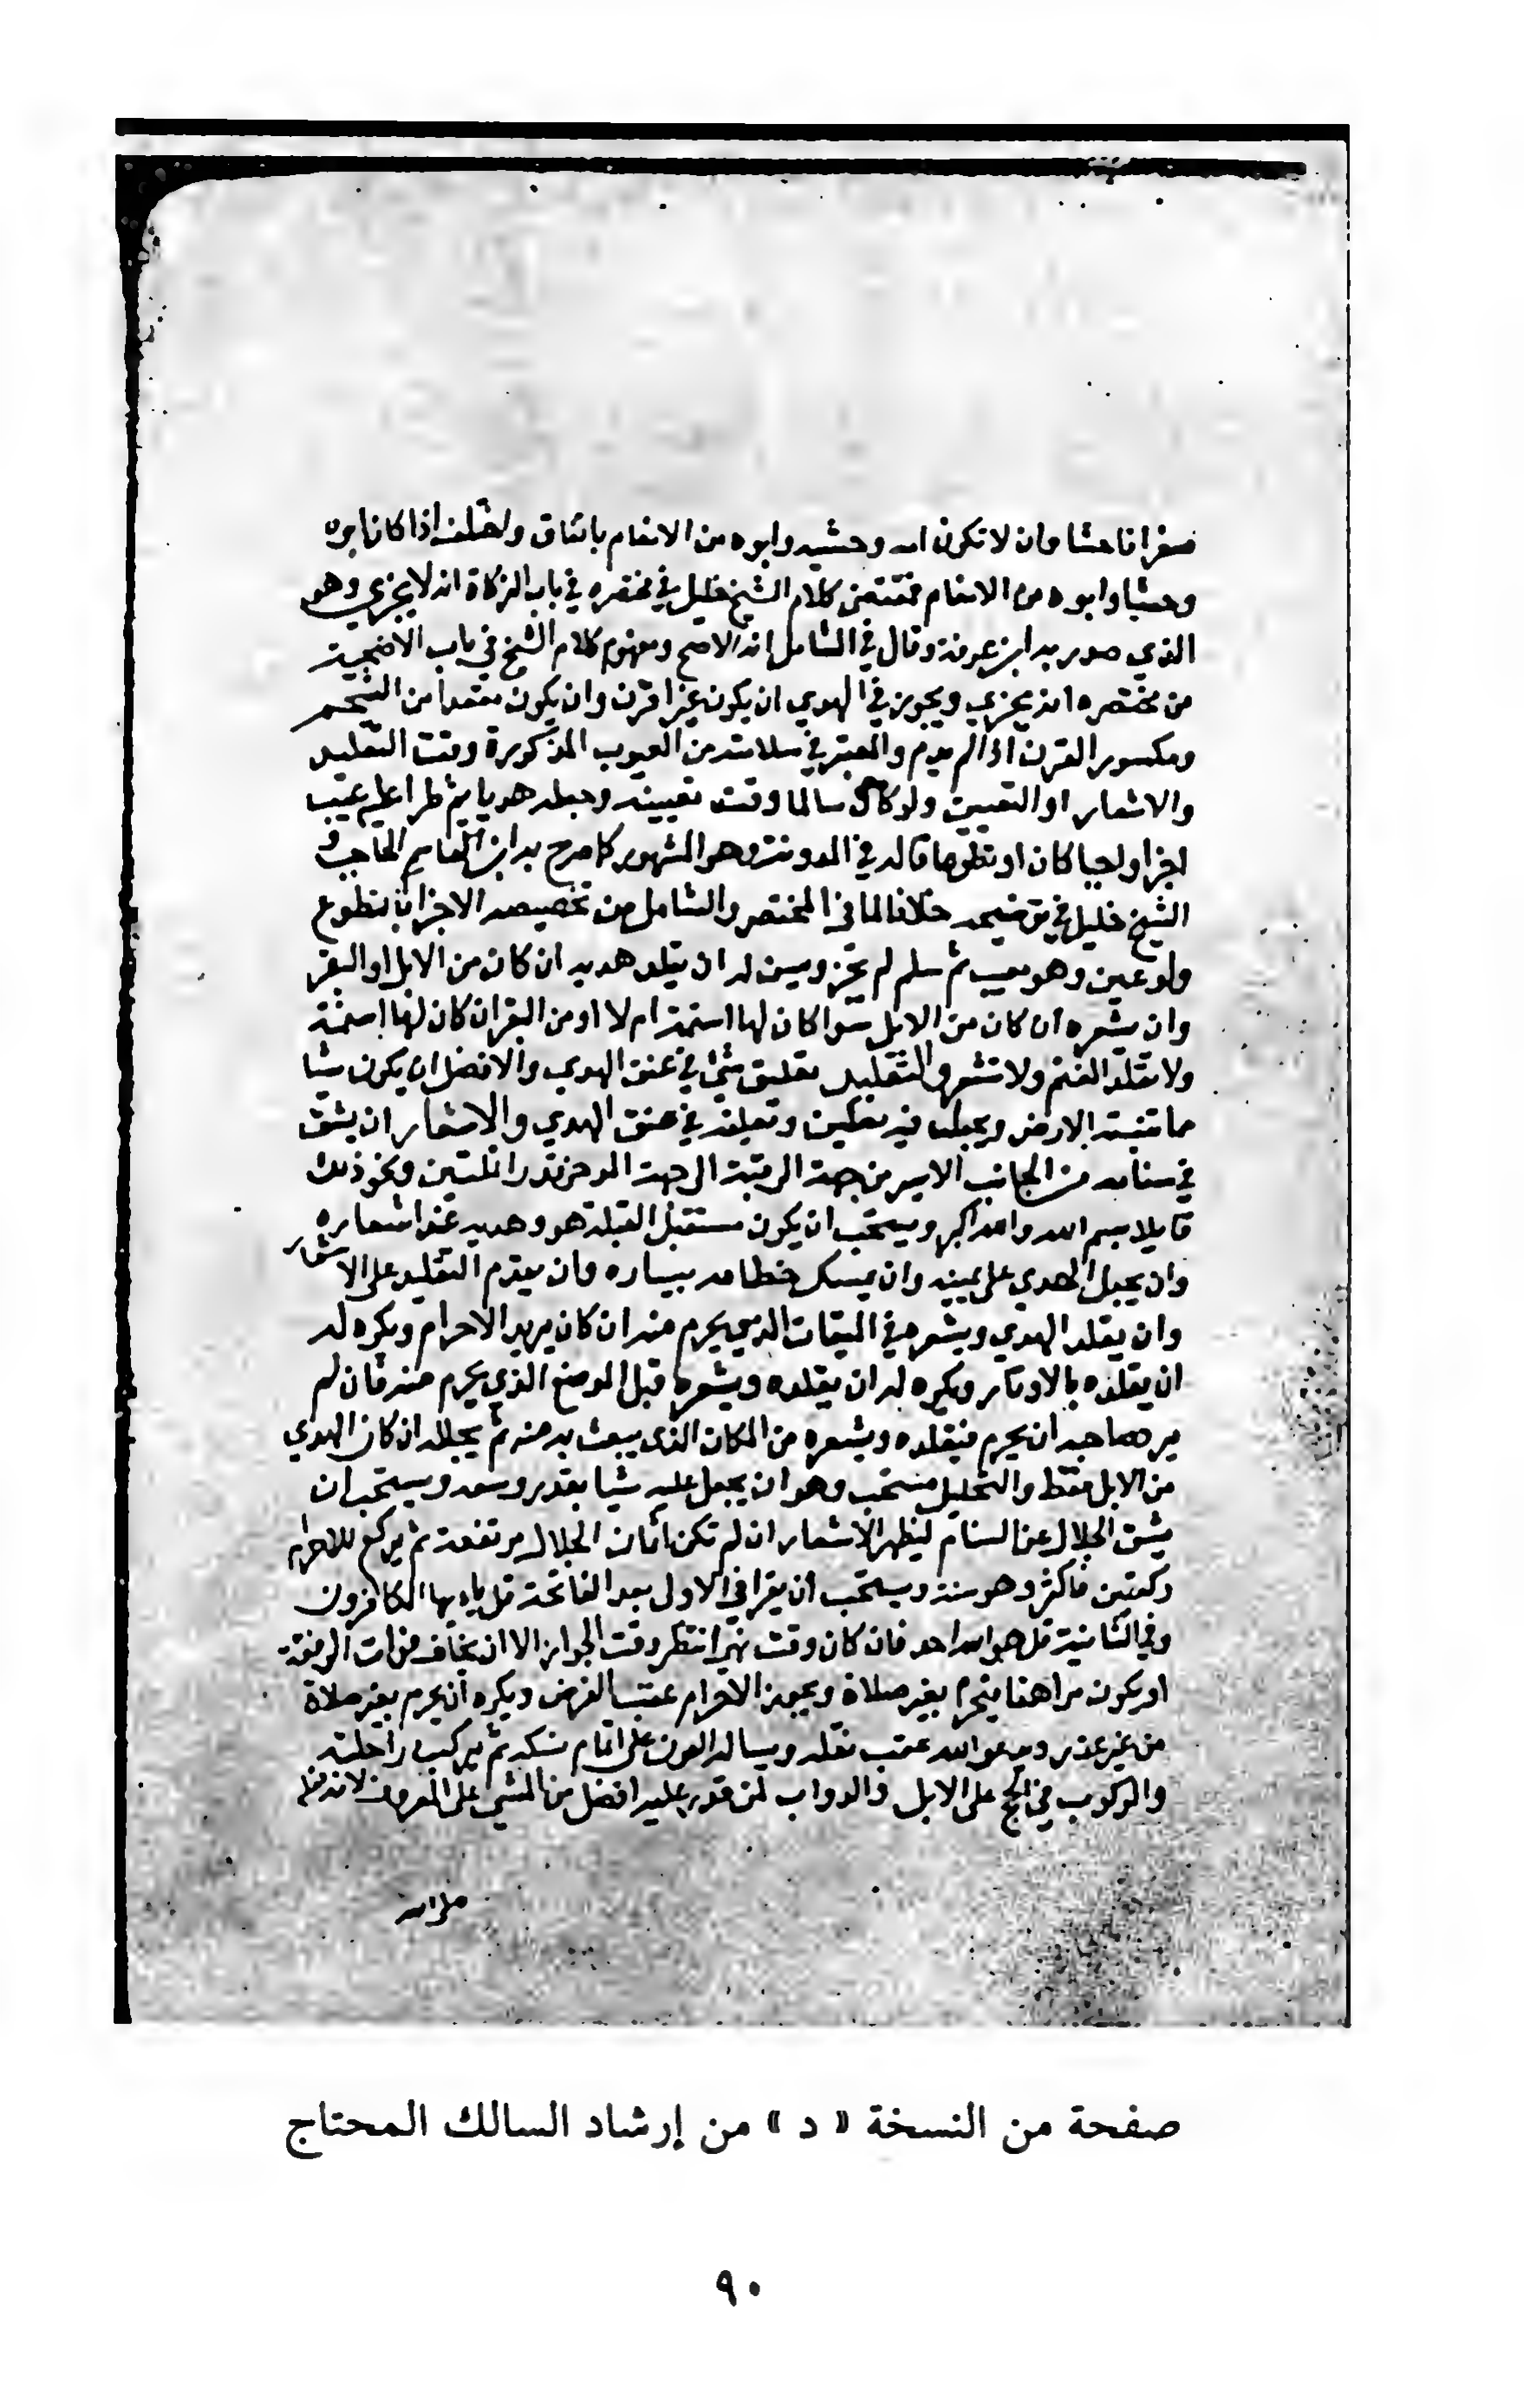 صغرا فاحشا وان لا تكون امه وحشيه وابوه من الانعام باتفاق واختلف اذا كان ابوه
وحشيا وابوه من الانعام فمقتضى كلام الشيخ خليل في مختصره في باب الزكاة انه لا يجزي وهو
الذي صدر به ابن عرفة وقال في الشامل انه الاصح ومفهوم كلام الشيخ في باب الاضحية
من مختصره انه يجزي ويجوز في الهدي ان يكون غير اقرن وان يكون مقعدا من الشحم
ومكسور القرن اذا لم يدم والمعتبر في سلامته من العيوب المذكورة وقت التقليد
والاشعار او التعيين ولو كان سالما وقت تعيينه وجعله هديا ثم طرا عليه عيب
اجزا واجبا كان او تطوعا قاله في المدونة وهو المشهور كما صرح به ابن الحاجب و
الشيخ خليل في توضيحه خلافا لما في المختصر والشامل من تخصيصه الاجزا بالتطوع
ولو عين وهو معيب ثم سلم لم يجز ويسن له ان يقلد هديه ان كان من الابل او البقر
وان يشعره ان كان من الابل سوا كان لها اسنمة ام لا او من البقر ان كان لها اسنمة
ولا تقلد الغنم ولا تشعر والتقليد تعليق شئ في عنق الهدي والافضل ان يكون شيا
مما تنبته الارض ويجعل فيه نعلين وتعليقه في عنق الهدي والاشعار ان يشق
في سنامه من الجانب الايسر من جهة الرقبة الى جهة الموخر قدر انملتين ونحو ذلك
قايلا بسم الله والله اكبر ويستحب ان يكون مستقبل القبلة هو وهديه عند اشعاره
وان يجعل الهدي على يمينه وان يمسك خطامه بيساره وان يقدم التقليد على الاشعار
وان يقلد الهدي ويشعره في الميقات الذي يحرم منه ان كان يريد الاحرام ويكره له
ان يقلده بالاوتار ويكره له ان يقلده ويشعره قبل الموضع الذي يحرم منه فان لم
يرد صاحبه ان يحرم فيقلده ويشعره من المكان الذي يبعث به منه ثم يجلله ان كان الهدي
من الابل فقط والتجليل مستحب وهو ان يجعل عليه شيا بقدر وسعه ويستحب ان
يشق الجلال عن السنام ليظهر الاشعار ان لم تكن اثمان الجلال مرتفعة ثم يركع للاحرام
ركعتين فاكثر وهو سنة ويستحب ان يقرا في الاولى بعد الفاتحة قل يا ايها الكافرون
وفي الثانية قل هو الله احد فان كان وقت نهي انتظر وقت الجواز الا ان يخاف فوات الرفقة
او يكون مراهقا فيحرم بغير صلاة ويجوز الاحرام عقب الفرض ويكره ان يحرم بغير صلاة
من غير عذر ويدعو الله عقب تنفله ويساله العون على اتمام نسكه ثم يركب راحلته
والركوب في الحج على الابل والدواب لمن قدر عليه افضل من المشي على المعروف لانه فعله
صلى الله
صفحة من النسخة « د » من إرشاد السالك المحتاج
٩٠